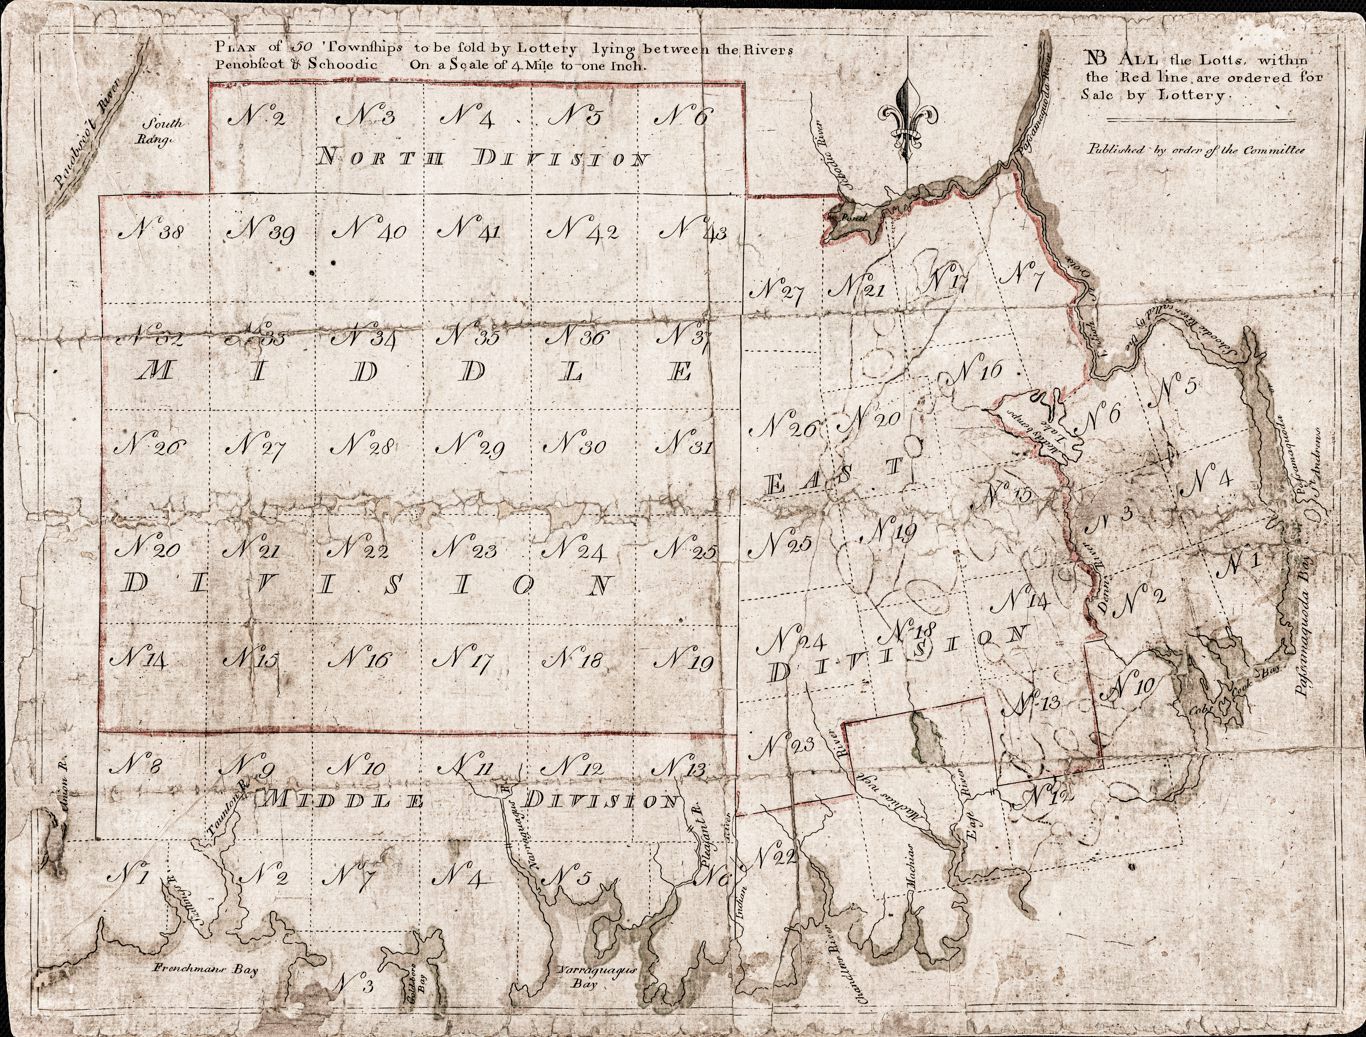 PLAN of 50 Townſhips to be ſold by Lottery lying between the Rivers
Penobſcot & Schoodic On a Scale of 4 Mile to one Inch.
NB ALL the Lotts within
the Red line are ordered for
Sale by Lottery.
Published by order of the Committee
Penobſcot River
South
Range
Schodic River
Paſsamaquoda River
Pond
No 2 No 3 No 4 No 5 No 6
NORTH DIVISION
No 38 No 39 No 40 No 41 No 42 No 43
No 27 No 21 No 17 No 7
No 32 No 33 No 34 No 35 No 36 No 37
MIDDLE
No 16 No 5
No 26 No 27 No 28 No 29 No 30 No 31
No 26 No 20 No 6
Lake
EAST
No 15 No 4
Paſsamaquoda
St Andrews
No 20 No 21 No 22 No 23 No 24 No 25
No 25 No 19 No 3 No 1
DIVISION
Denny River
No 14 No 2
Paſsamaquoda Bay
No 14 No 15 No 16 No 17 No 18 No 19
No 24 No 18
DIVISION
No 13 No 10
Cobscook Bay
No 8 No 9 No 10 No 11 No 12 No 13
No 23
Machias west River
East River
No 12
MIDDLE DIVISION
Union R.
Taunton R.
Narraguagus R.
Pleaſant R.
No 1 No 2 No 7 No 4 No 5 No 6
No 22
Indian River
Machias
Chandlers River
Frenchmans Bay
No 3
Goldsboro
Bay
Narraguagus
Bay